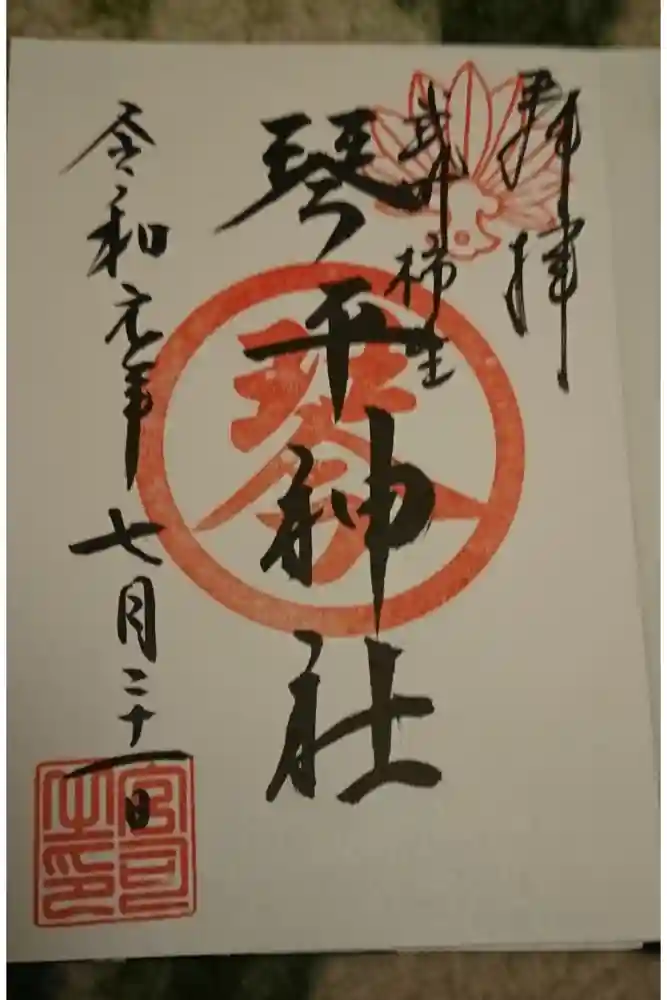 奉拝
武州柿生
琴平神社
令和元年七月二十一日
琴
宮司之印